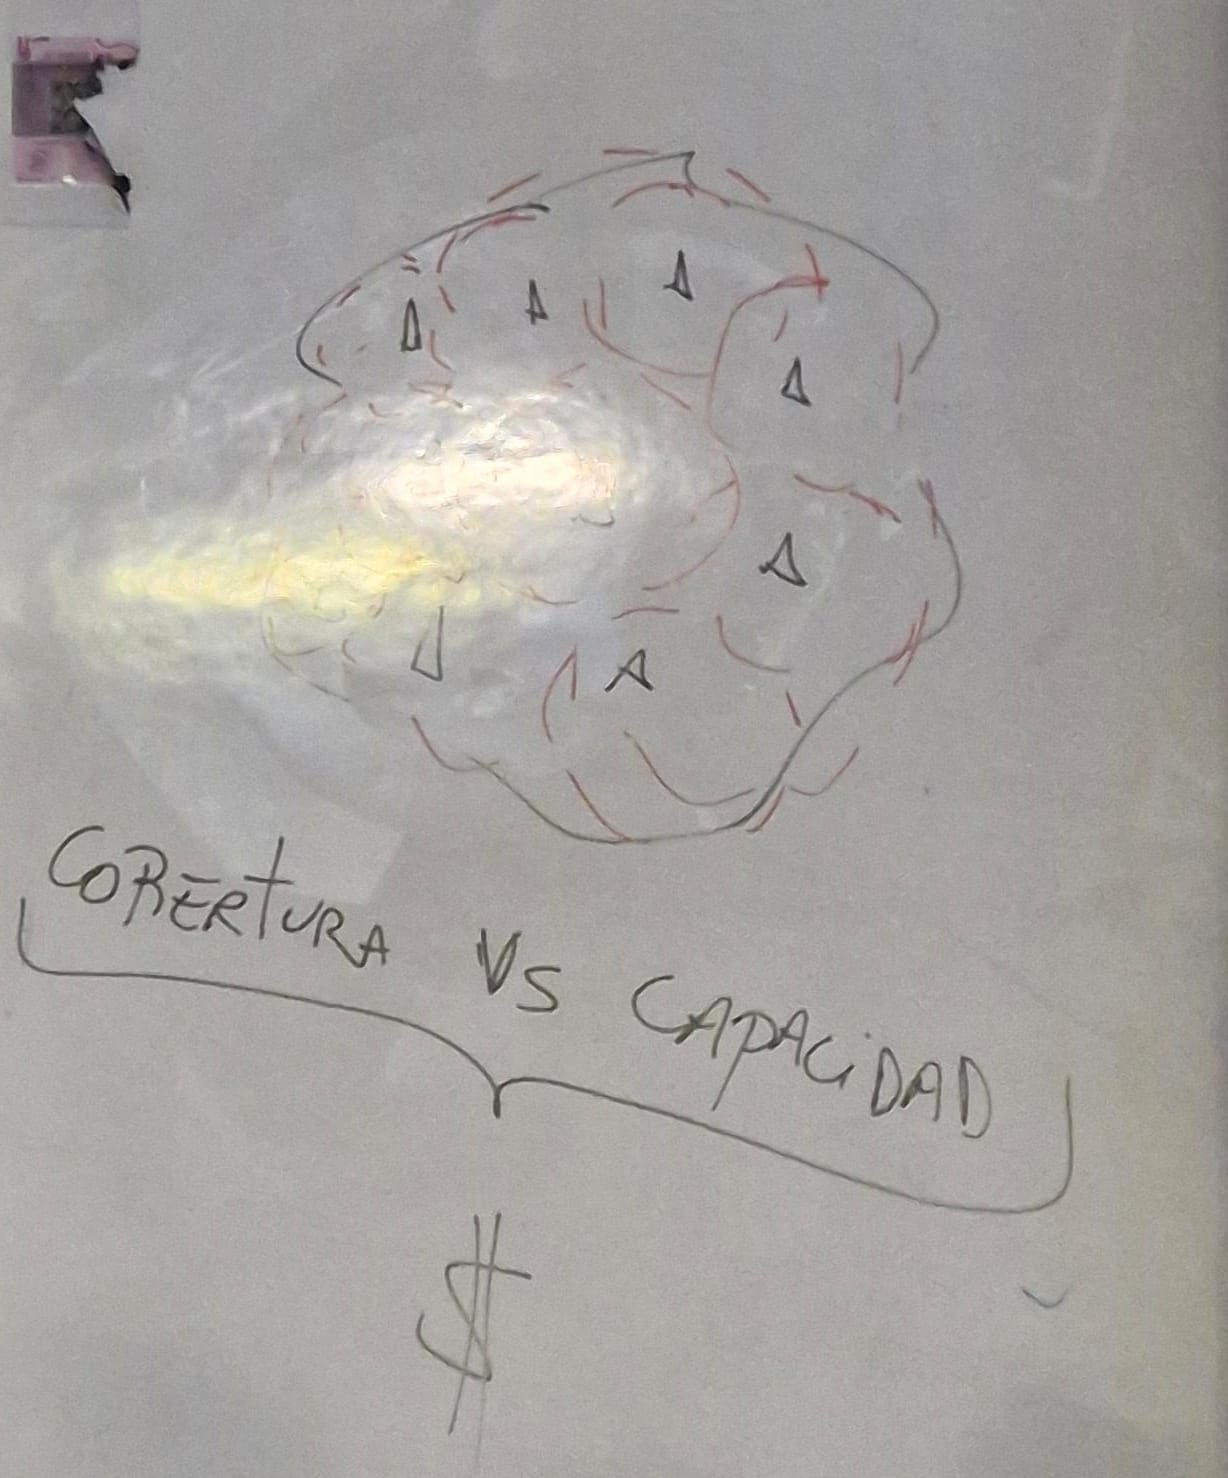 COBERTURA VS CAPACIDAD
$